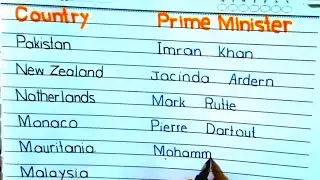 Country Prime Minister
Pakistan Imran Khan
New Zealand Jacinda Ardern
Natherlands Mark Rutte
Monaco Pierre Dartout
Mauritania Mohamm
Malaysia